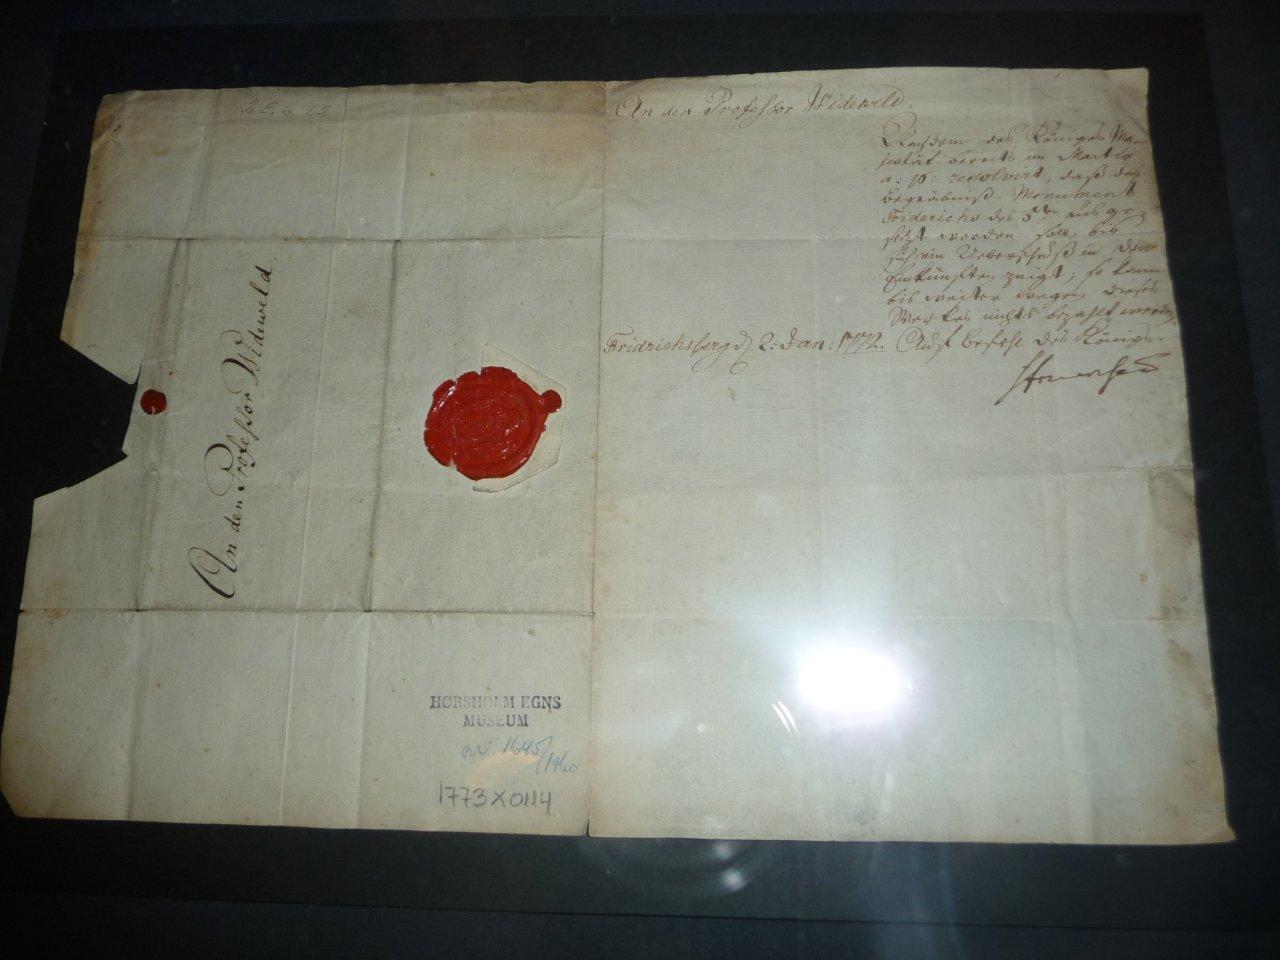 An den Professor Wideweld.
HØRSHOLM EGNS
MUSEUM
1645/1960
1773X0114
An den Professor Wideweld.
Nachdem des Königes Ma-
jestät bereits im Martio
a: p: resolvirt, daß das
Begräbniß Monument
Friderichs des 5ten ausge-
setzt werden soll, bis
sich ein Ueberschuß in den
Einkünften zeigt, so kann
bis weiter wegen dieses
Werkes nichts bezahlt werden.
Fridrichsberg d 2: Jan: 1772. Auf Befehl des Königs.
Struensee